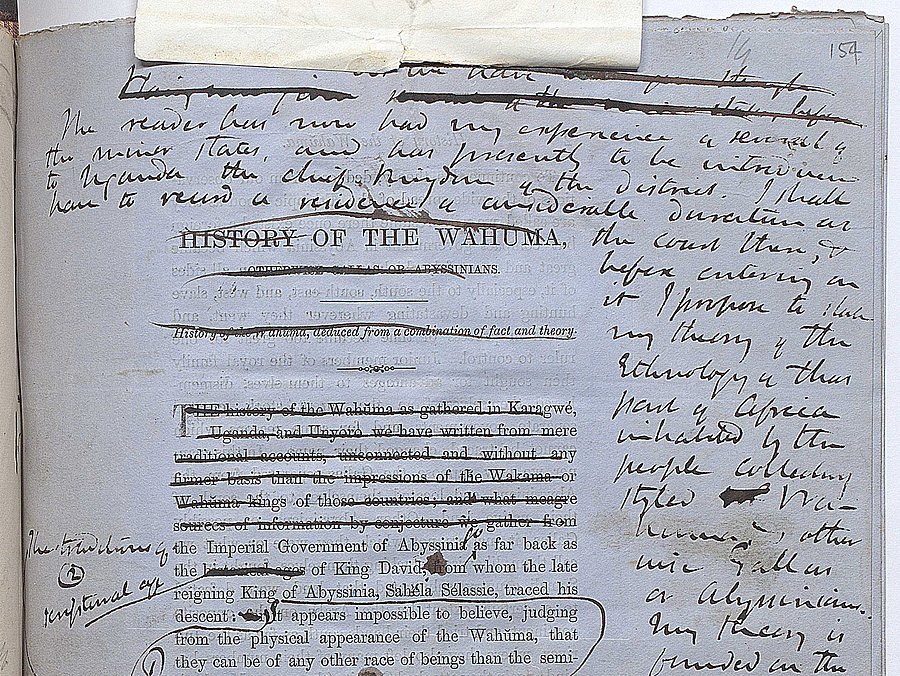 154
The reader has now had my experience of several of
the minor states, and has presently to be introduced
to Uganda the chief kingdom of the district. I shall
have to record a residence of considerable duration at
the court there, &
before entering on
it I propose to state
my theory of the
Ethnology of that
part of Africa
inhabited by the
people collectively
styled Wa-
huma, other
wise Gallas
or Abyssinians.
My theory is
founded on the
HISTORY OF THE WAHŪMA,
OTHERWISE GALLAS OR ABYSSINIANS.
History of the Wahŭma, deduced from a combination of fact and theory.
THE history of the Wahŭma as gathered in Karagwé,
Uganda, and Unyoro we have written from mere
traditional accounts, unconnected and without any
firmer basis than the impressions of the Wakama or
Wahŭma kings of those countries; and what meagre
sources of information by conjecture we gather from
the Imperial Government of Abyssinia as far back as
the historical ages of King David, from whom the late
reigning King of Abyssinia, Sahéla Sélassie, traced his
descent: it appears impossible to believe, judging
from the physical appearance of the Wahŭma, that
they can be of any other race of beings than the semi-
The traditions of
2
scriptural age
1